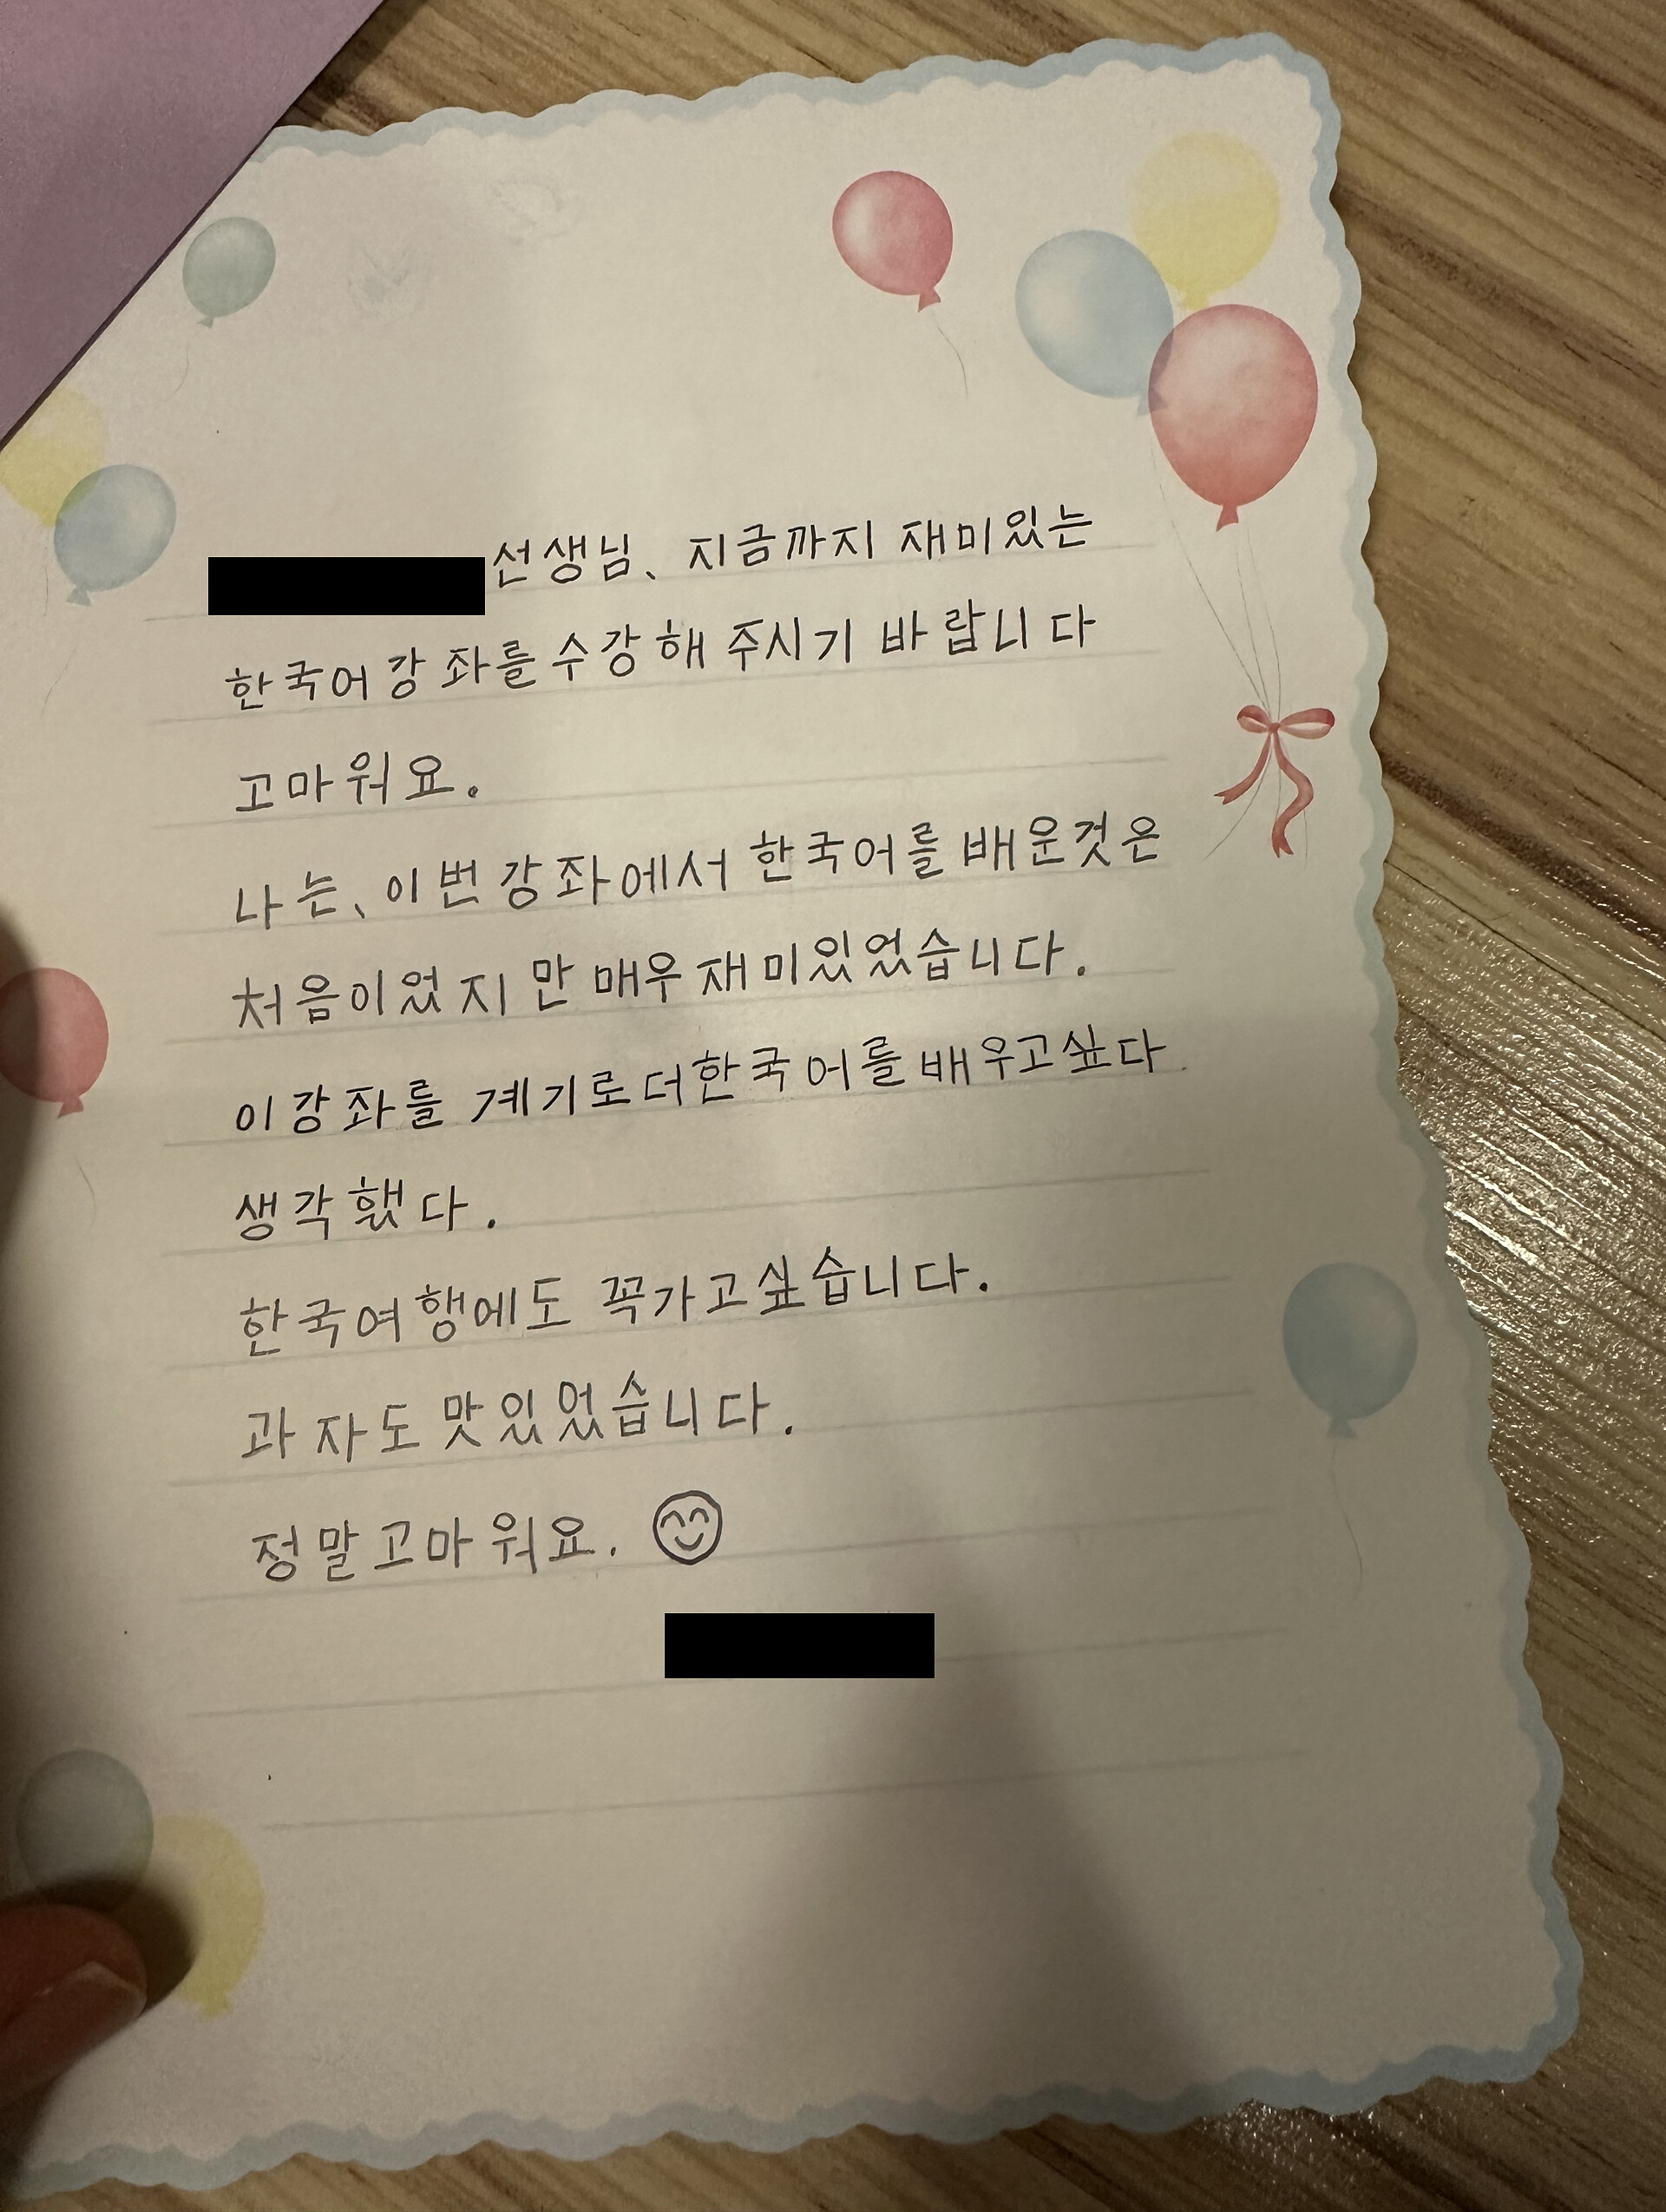 선생님、지금까지 재미있는
한국어강좌를수강해 주시기 바랍니다
고마워요.
나는、이번강좌에서 한국어를 배운것은
처음이었지만 매우재미있었습니다.
이강좌를 계기로더한국어를배우고싶다
생각했다.
한국여행에도 꼭가고싶습니다.
과자도맛있었습니다.
정말고마워요.